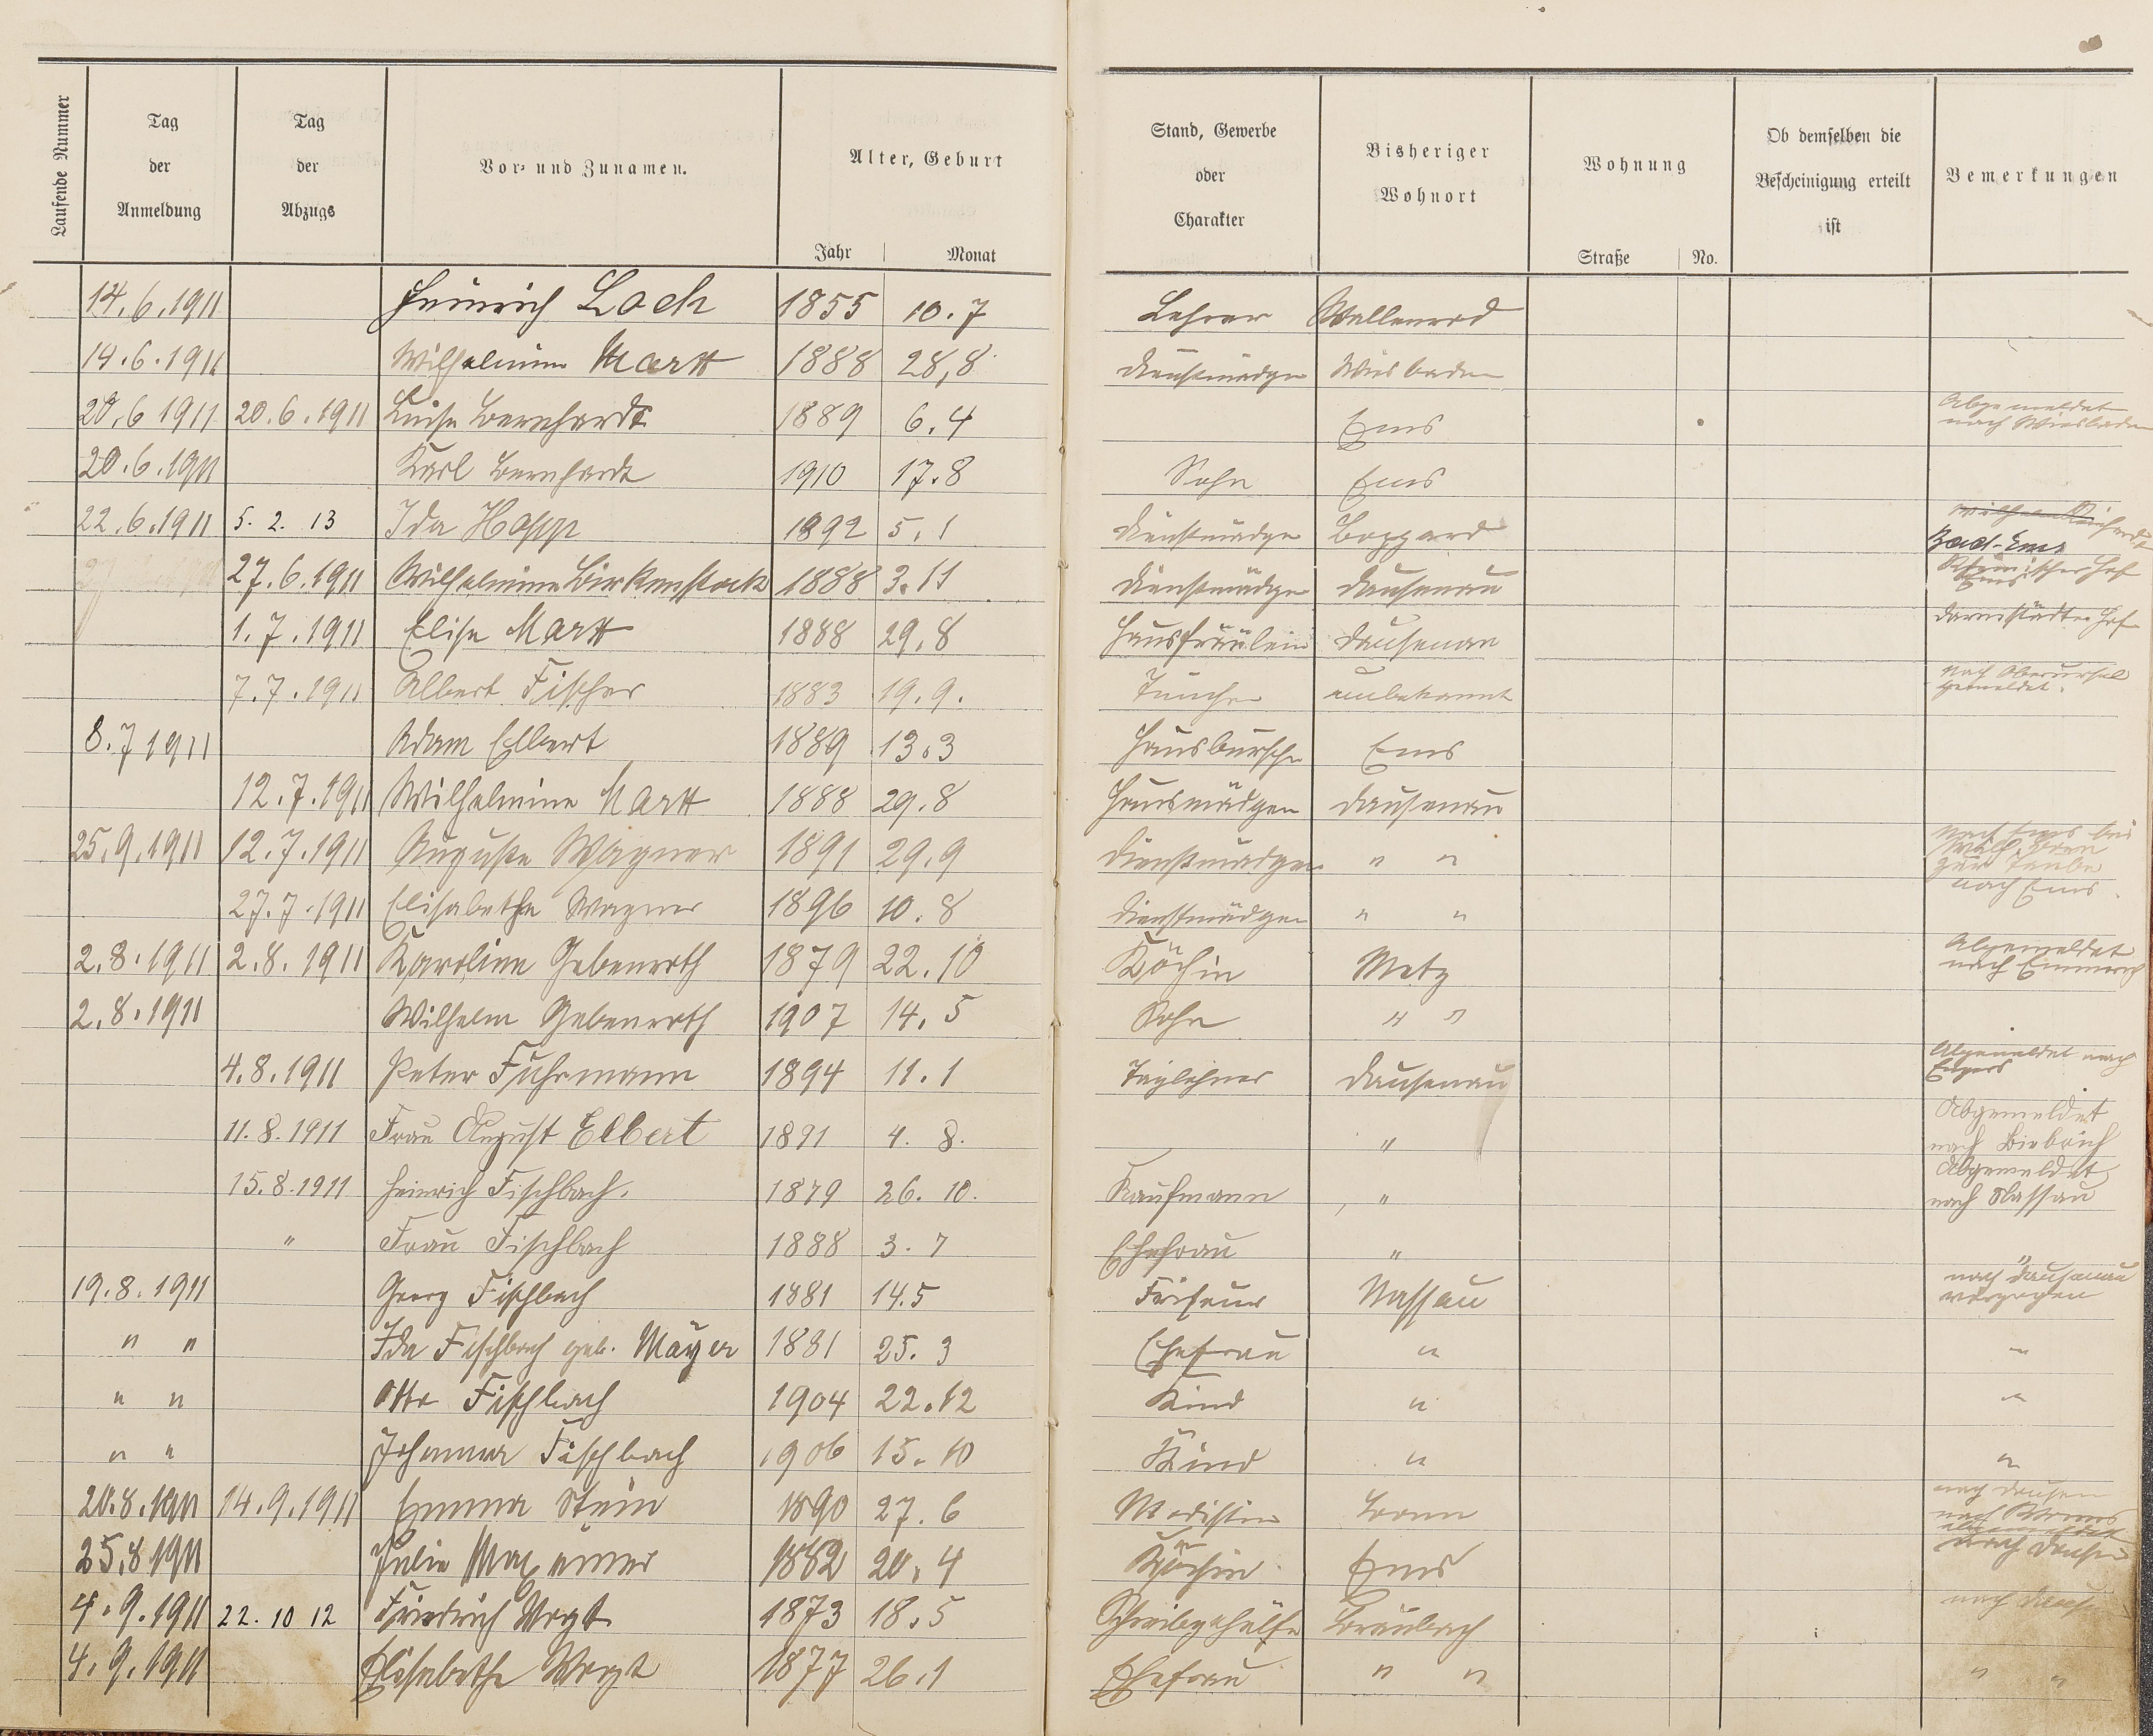 Laufende Nummer
Tag der Anmeldung
Tag der Abzugs
Vor- und Zunamen.
Alter, Geburt
Jahr Monat
Stand, Gewerbe oder Charakter
Bisheriger Wohnort
Wohnung
Straße No.
Ob demselben die Bescheinigung erteilt ist
Bemerkungen
14.6.1911 Heinrich Loch 1855 10.7 Lehrer Wallenrod
14.6.1911 Wilhelmine Martt 1888 28,8 Dienstmädgen Wiesbaden
20.6 1911 20.6.1911 Luise Bernhardt 1889 6.4 Ems Abgemeldet nach Wiesbaden
20.6.1911 Karl Bernhardt 1910 17.8 Sohn Ems
22.6.1911 5.2.13 Ida Hopp 1892 5.1 Dienstmädgen Boppard Bad-Ems
27.6.1911 Wilhelmine Birkenstock 1888 3.11 Dienstmädgen Dausenau Römischer Hof Ems
1.7.1911 Elise Martt 1888 29.8 Hausfräulein Dausenau Darmstädter Hof
7.7.1911 Albert Fischer 1883 19.9. Tüncher unbekannt nach Oberursel gemeldet.
8.7 1911 Adam Elbert 1889 13.3 Hausbursche Ems
12.7.1911 Wilhelmine Martt 1888 29.8 Hausmädgen Dausenau
25.9.1911 12.7.1911 Auguste Wagner 1891 29.9 Dienstmädgen " " nach Ems bei zur Taube
27.7.1911 Elisabethe Wagner 1896 10.8 Dienstmädgen " " nach Ems.
2.8.1911 2.8.1911 Karoline Gebenroth 1879 22.10 Köchin Metz Abgemeldet nach
2.8.1911 Wilhelm Gebenroth 1907 14.5 Sohn " "
4.8.1911 Peter Fuhrmann 1894 11.1 Taglehner Dausenau Abgemeldet nach Engers
11.8.1911 Frau August Elbert 1891 4.8. " Abgemeldet nach Biebrich
15.8.1911 Heinrich Fischbach. 1879 26.10. Kaufmann " Abgemeldet nach Nassau
" Frau Fischbach 1888 3.7 Ehefrau " "
19.8.1911 Georg Fischbach 1881 14.5 Friseur Nassau nach Dausenau verzogen
" " Ida Fischbach geb. Mayer 1881 25.3 Ehefrau " "
" " Otto Fischbach 1904 22.12 Kind " "
" " Johanna Fischbach 1906 15.10 Kind " "
20.8.1911 14.9.1911 Emma Stein 1890 27.6 Modistin nach
25.8.1911 Julie 1882 20.4 Köchin Ems nach
4.9.1911 22.10 12 Friedrich Vogt 1873 18.5 Schreibgehülfe Braubach nach
4.9.1911 Elisabethe Vogt 1877 26.1 Ehefrau " " " "